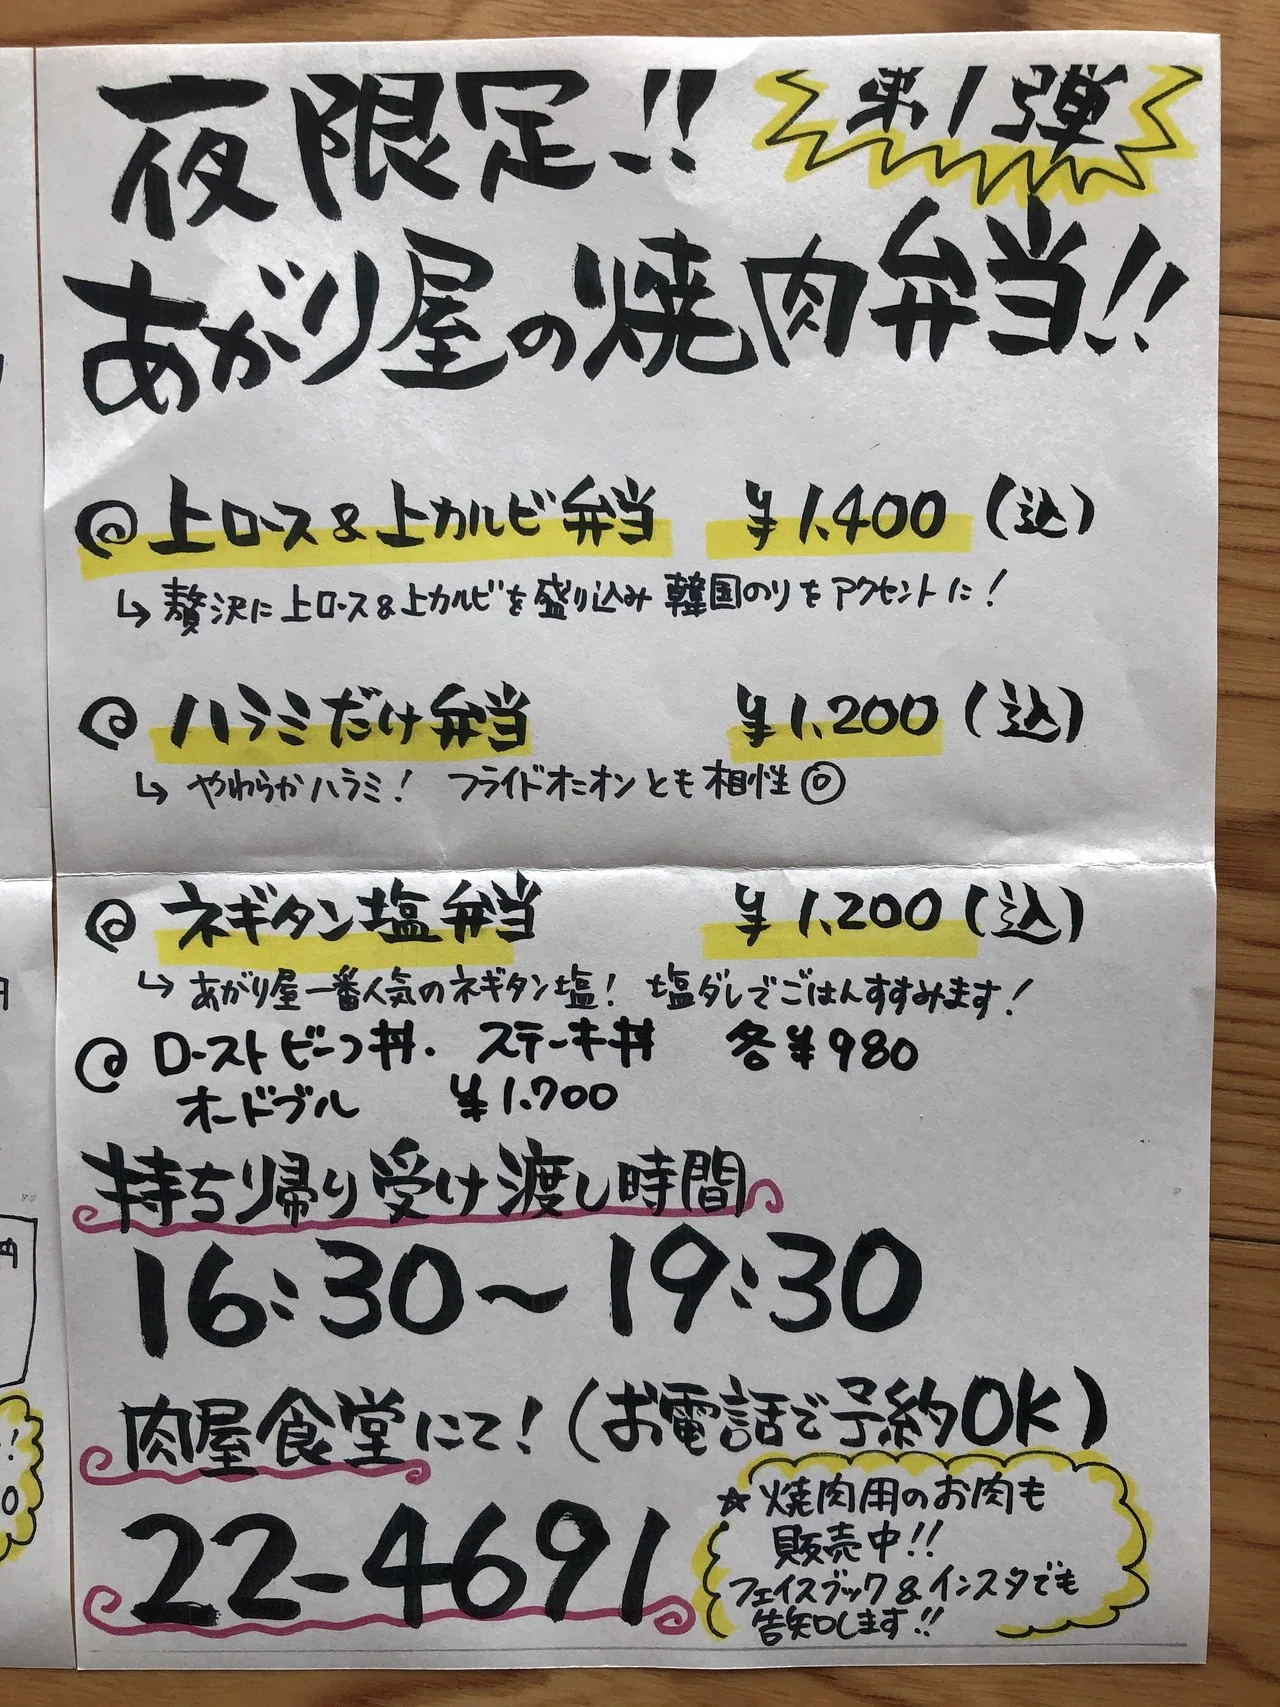 夜限定!! 第1弾
あがり屋の焼肉弁当!!
@上ロース&上カルビ弁当 ¥1,400(込)
↳贅沢に上ロース&上カルビを盛り込み韓国のりをアクセントに!
@ハラミだけ弁当 ¥1,200(込)
↳やわらかハラミ! フライドオニオンとも相性◎
@ネギタン塩弁当 ¥1,200(込)
↳あがり屋一番人気のネギタン塩! 塩ダレでごはんすすみます!
@ローストビーフ丼. ステーキ丼 各¥980
オードブル ¥1.700
持ち帰り受け渡し時間
16:30〜19:30
肉屋食堂にて!(お電話で予約OK)
22-4691
☆焼肉用のお肉も
販売中!!
フェイスブック&インスタでも
告知します!!